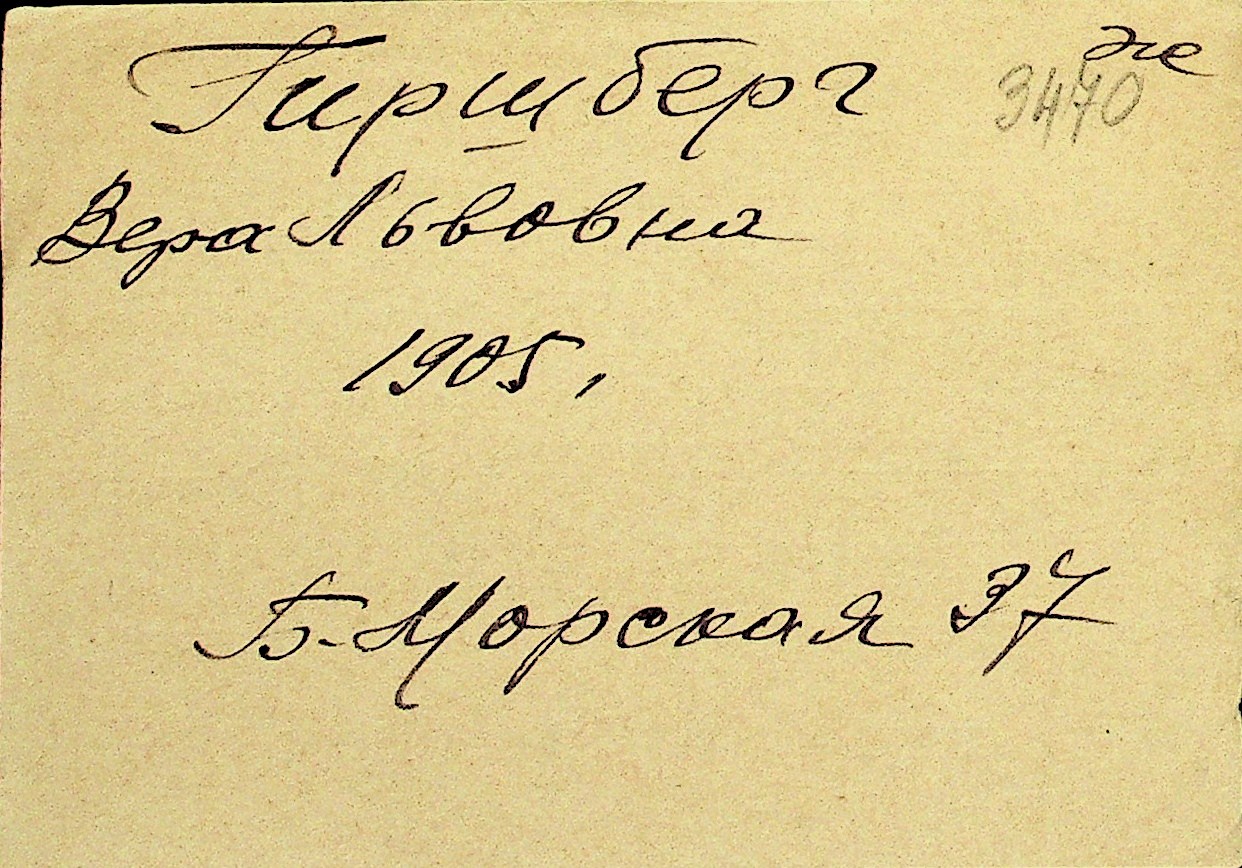 Гиршберг же
3470
Вера Львовна
1905,
Б. Морская 37